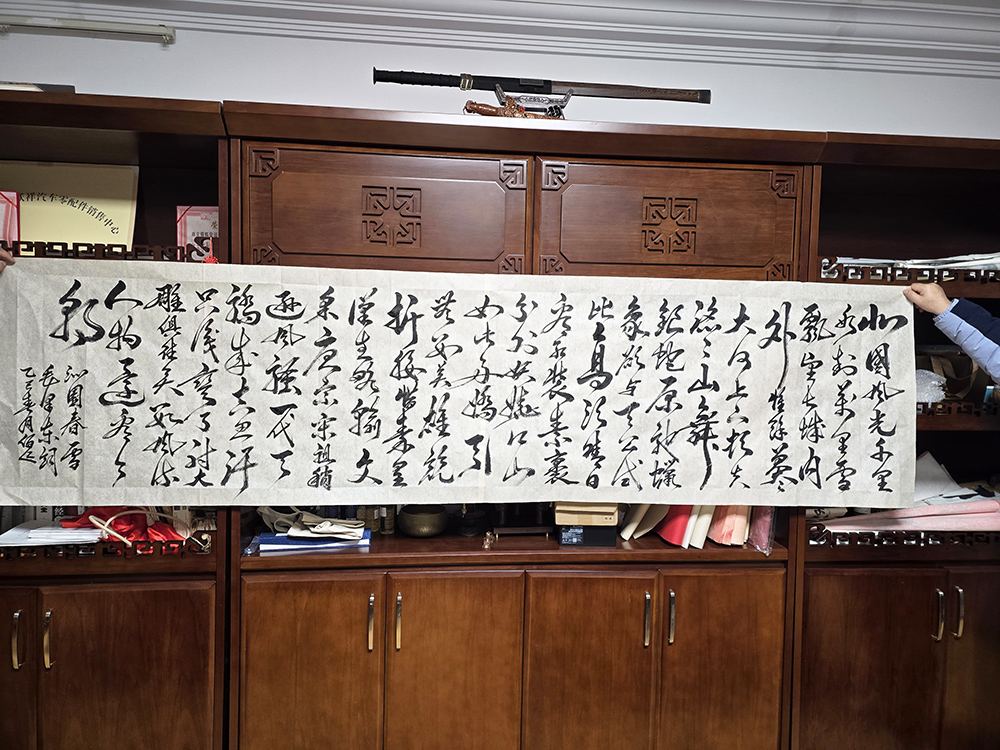 北國風光千里
冰封萬里雪
飄望长城内
外惟餘莽々
大河上下顿失
滔々山舞
銀蛇原驰蠟
象欲与天公试
比高须晴日
看红装素裹
分外妖娆江山
如此多嬌引
無数英雄競
折腰惜秦皇
漢武略輸文
采唐宗宋祖稍
逊風骚一代天
骄成吉思汗
只识弯弓射大
雕俱往矣数風流
人物還看今
朝
沁園春雪
毛泽东词
乙巳春月
祥汽车零配件销售中心